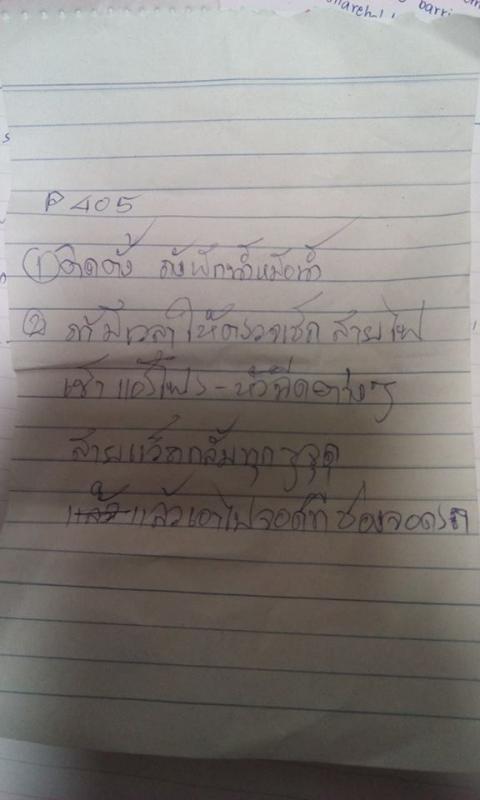 P 405
① ติดตั้ง ถังพักน้ำหม้อน้ำ
② ถ้ามีเวลา ให้ตรวจเช็ก สายไฟ
เข้า แอร์โฟร - หัวฉีดต่างๆ
สายแว็คคลั่มทุกๆจุด
แล้ว แล้วเอาไปจอดที่ ช่องจอดรถ